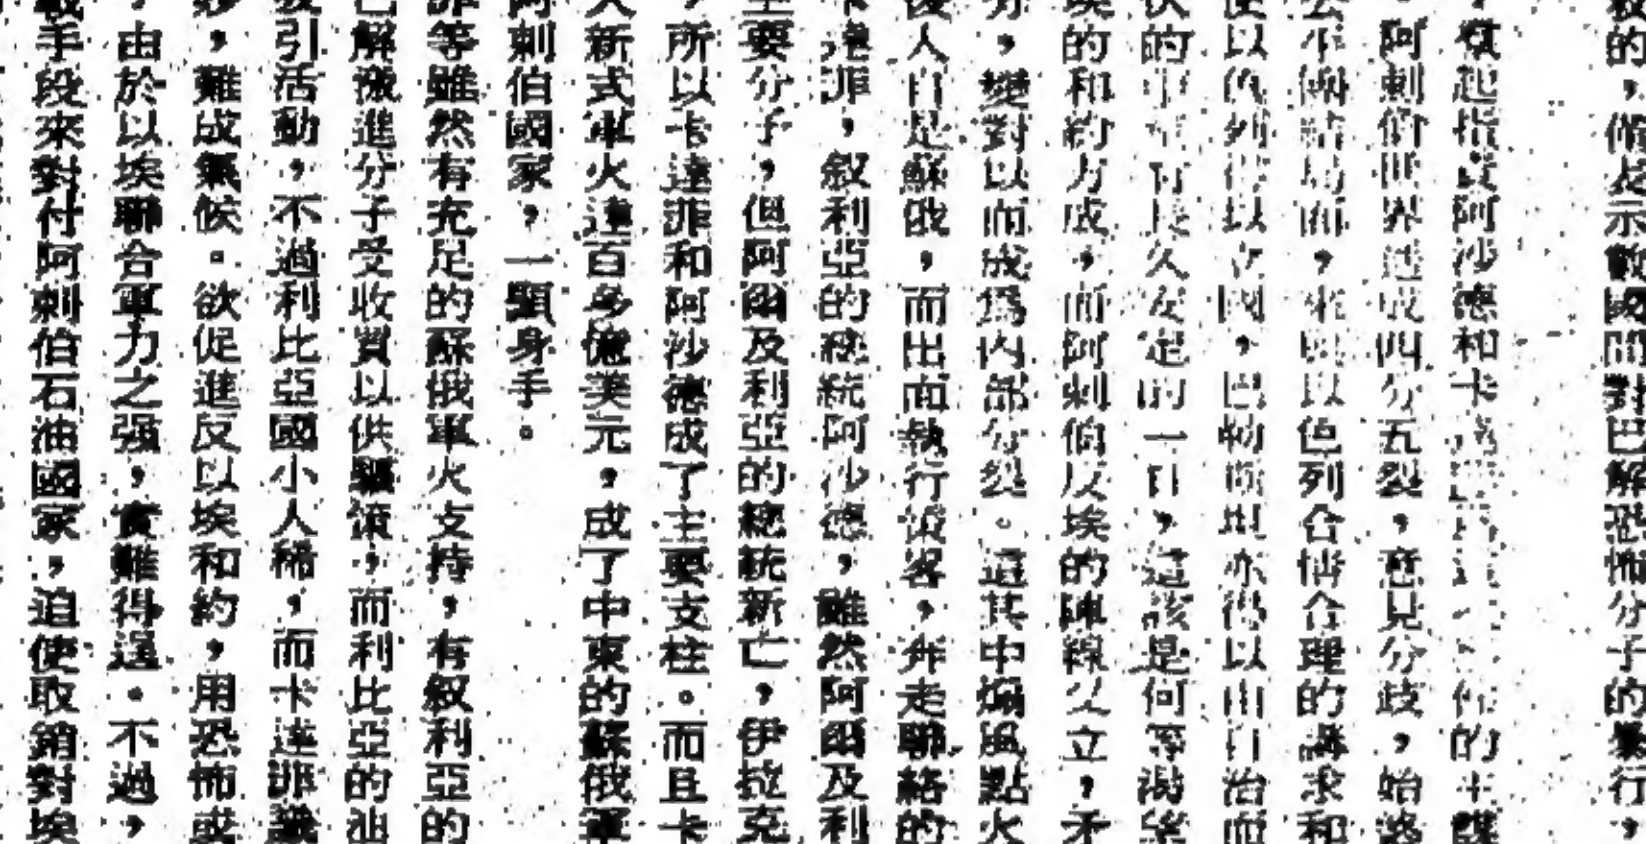 的，備是示數國間對巴解恐怖分子的暴行，
，煤起指責阿沙德和卡達作的主謀
。阿剌伯世界造成四分五裂，意見分歧，始
不傳結局面，來與以色列合情合理的講求和
使以色列得以立國，巴勒斯坦亦得以由自治而
的中東有長久安定的一日，這該是何等渴望
埃的和約方成，而阿剌伯反埃的陣線又立，矛
，變對以而成為內部分裂。這其中煽風點火
後人自是蘇俄，而出面執行策客，奔走聯絡的
達菲，叙利亞的總統阿沙德，雖然阿爾及利
主要分子，但阿爾及利亞的總統新亡，伊拉克
，所以卡達菲和阿沙德成了主要支柱。而且卡
新式軍火達百多億美元，成了中東的蘇俄軍
阿剌伯國家，一顯身手。
菲等雖然有充足的蘇俄軍火支持，有叙利亞的
巴解激進分子受收買以供驅策，而利比亞的油
引活動，不過利比亞國小人稀，而卡達菲識
，難成氣候。欲促進反以埃和約，用恐怖或
，由於以埃聯合軍力之强，實難得逞。不過，
戰手段來對付阿剌伯石油國家，迫使取銷對埃